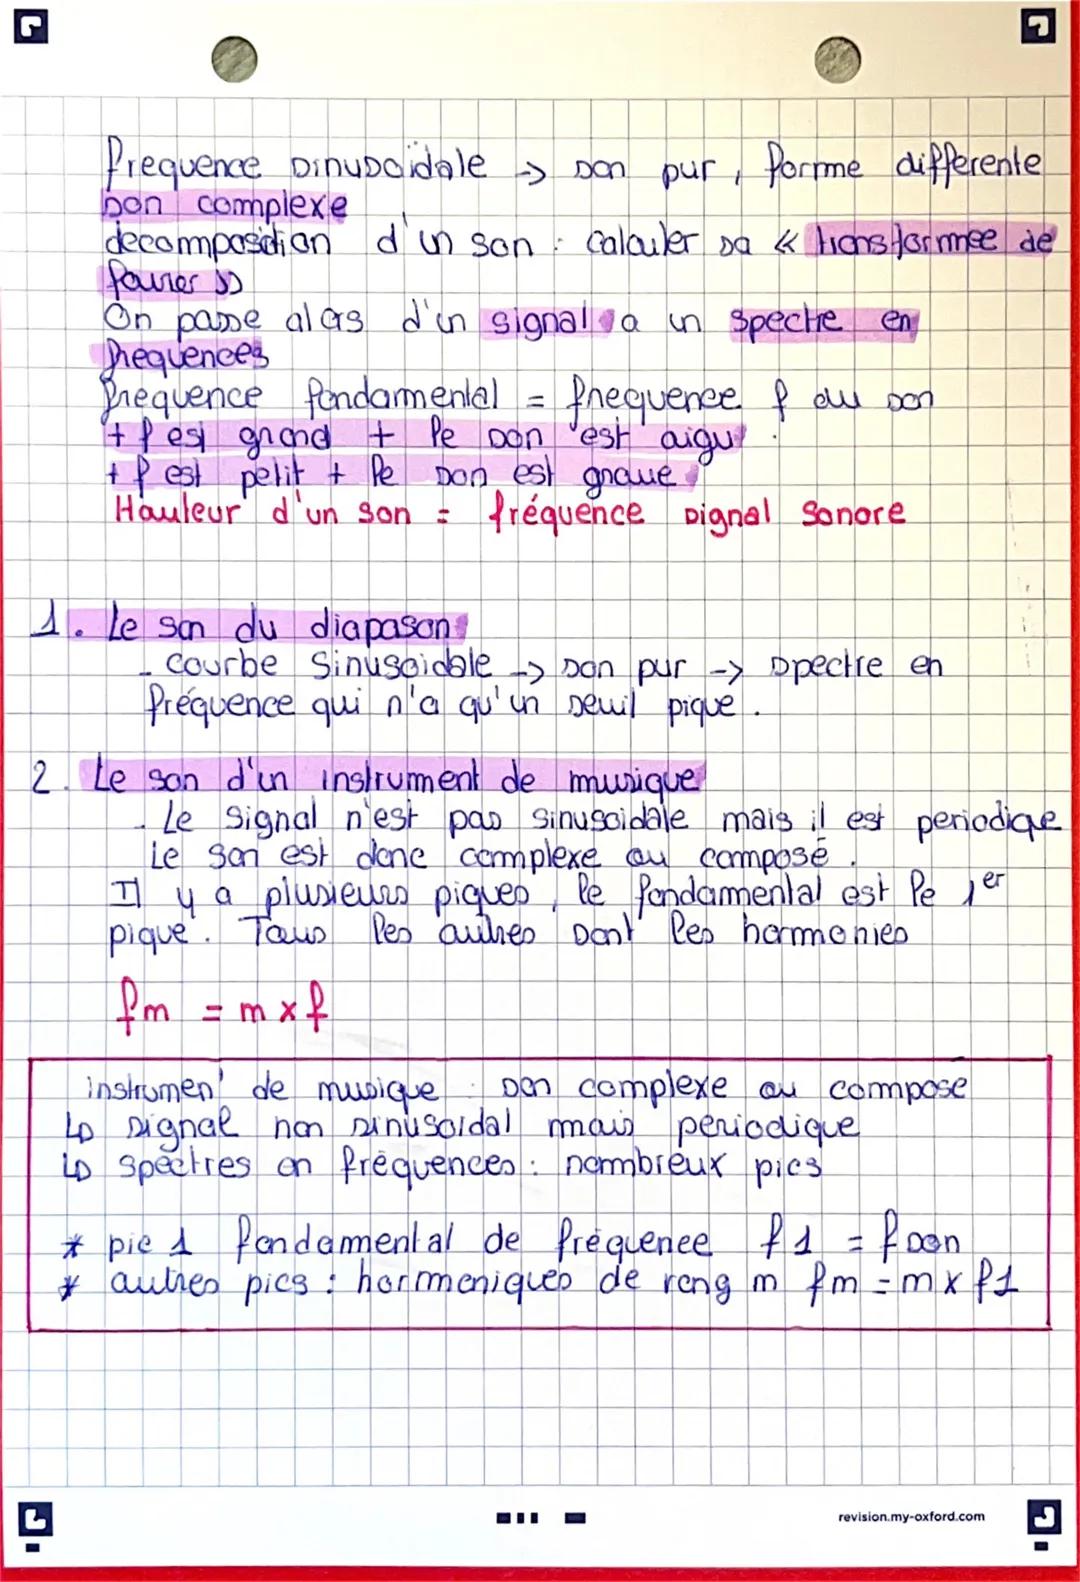 frequence sinusoïdale -> son pur, forme differente
son complexe
decomposition d'un son : calculer sa « transformee de
fourier »
On passe alors d'un signal a un spectre en
frequences
frequence fondammental = frequence f du son
+ f est grand + le son est aigu.
+ f est petit + le son est grave
Hauteur d'un son = fréquence signal sonore
1. Le son du diapason
- courbe sinusoïdale -> son pur -> spectre en
fréquence qui n'a qu'un seuil pique.
2. Le son d'un instrument de musique
- Le signal n'est pas sinusoïdale mais il est periodique
Le son est donc complexe ou composé.
Il y a plusieurs piques, le fondammental est le 1er
pique. Tous les autres sont les harmonies
fm = m x f
instrument de musique : son complexe ou compose
↳ signal non sinusoïdal mais periodique
↳ spectres en fréquences : nombreux pics
* pic 1 fondamental de fréquence f1 = fson
* autres pics : harmoniques de rang m fm = m x f1
revision.my-oxford.com